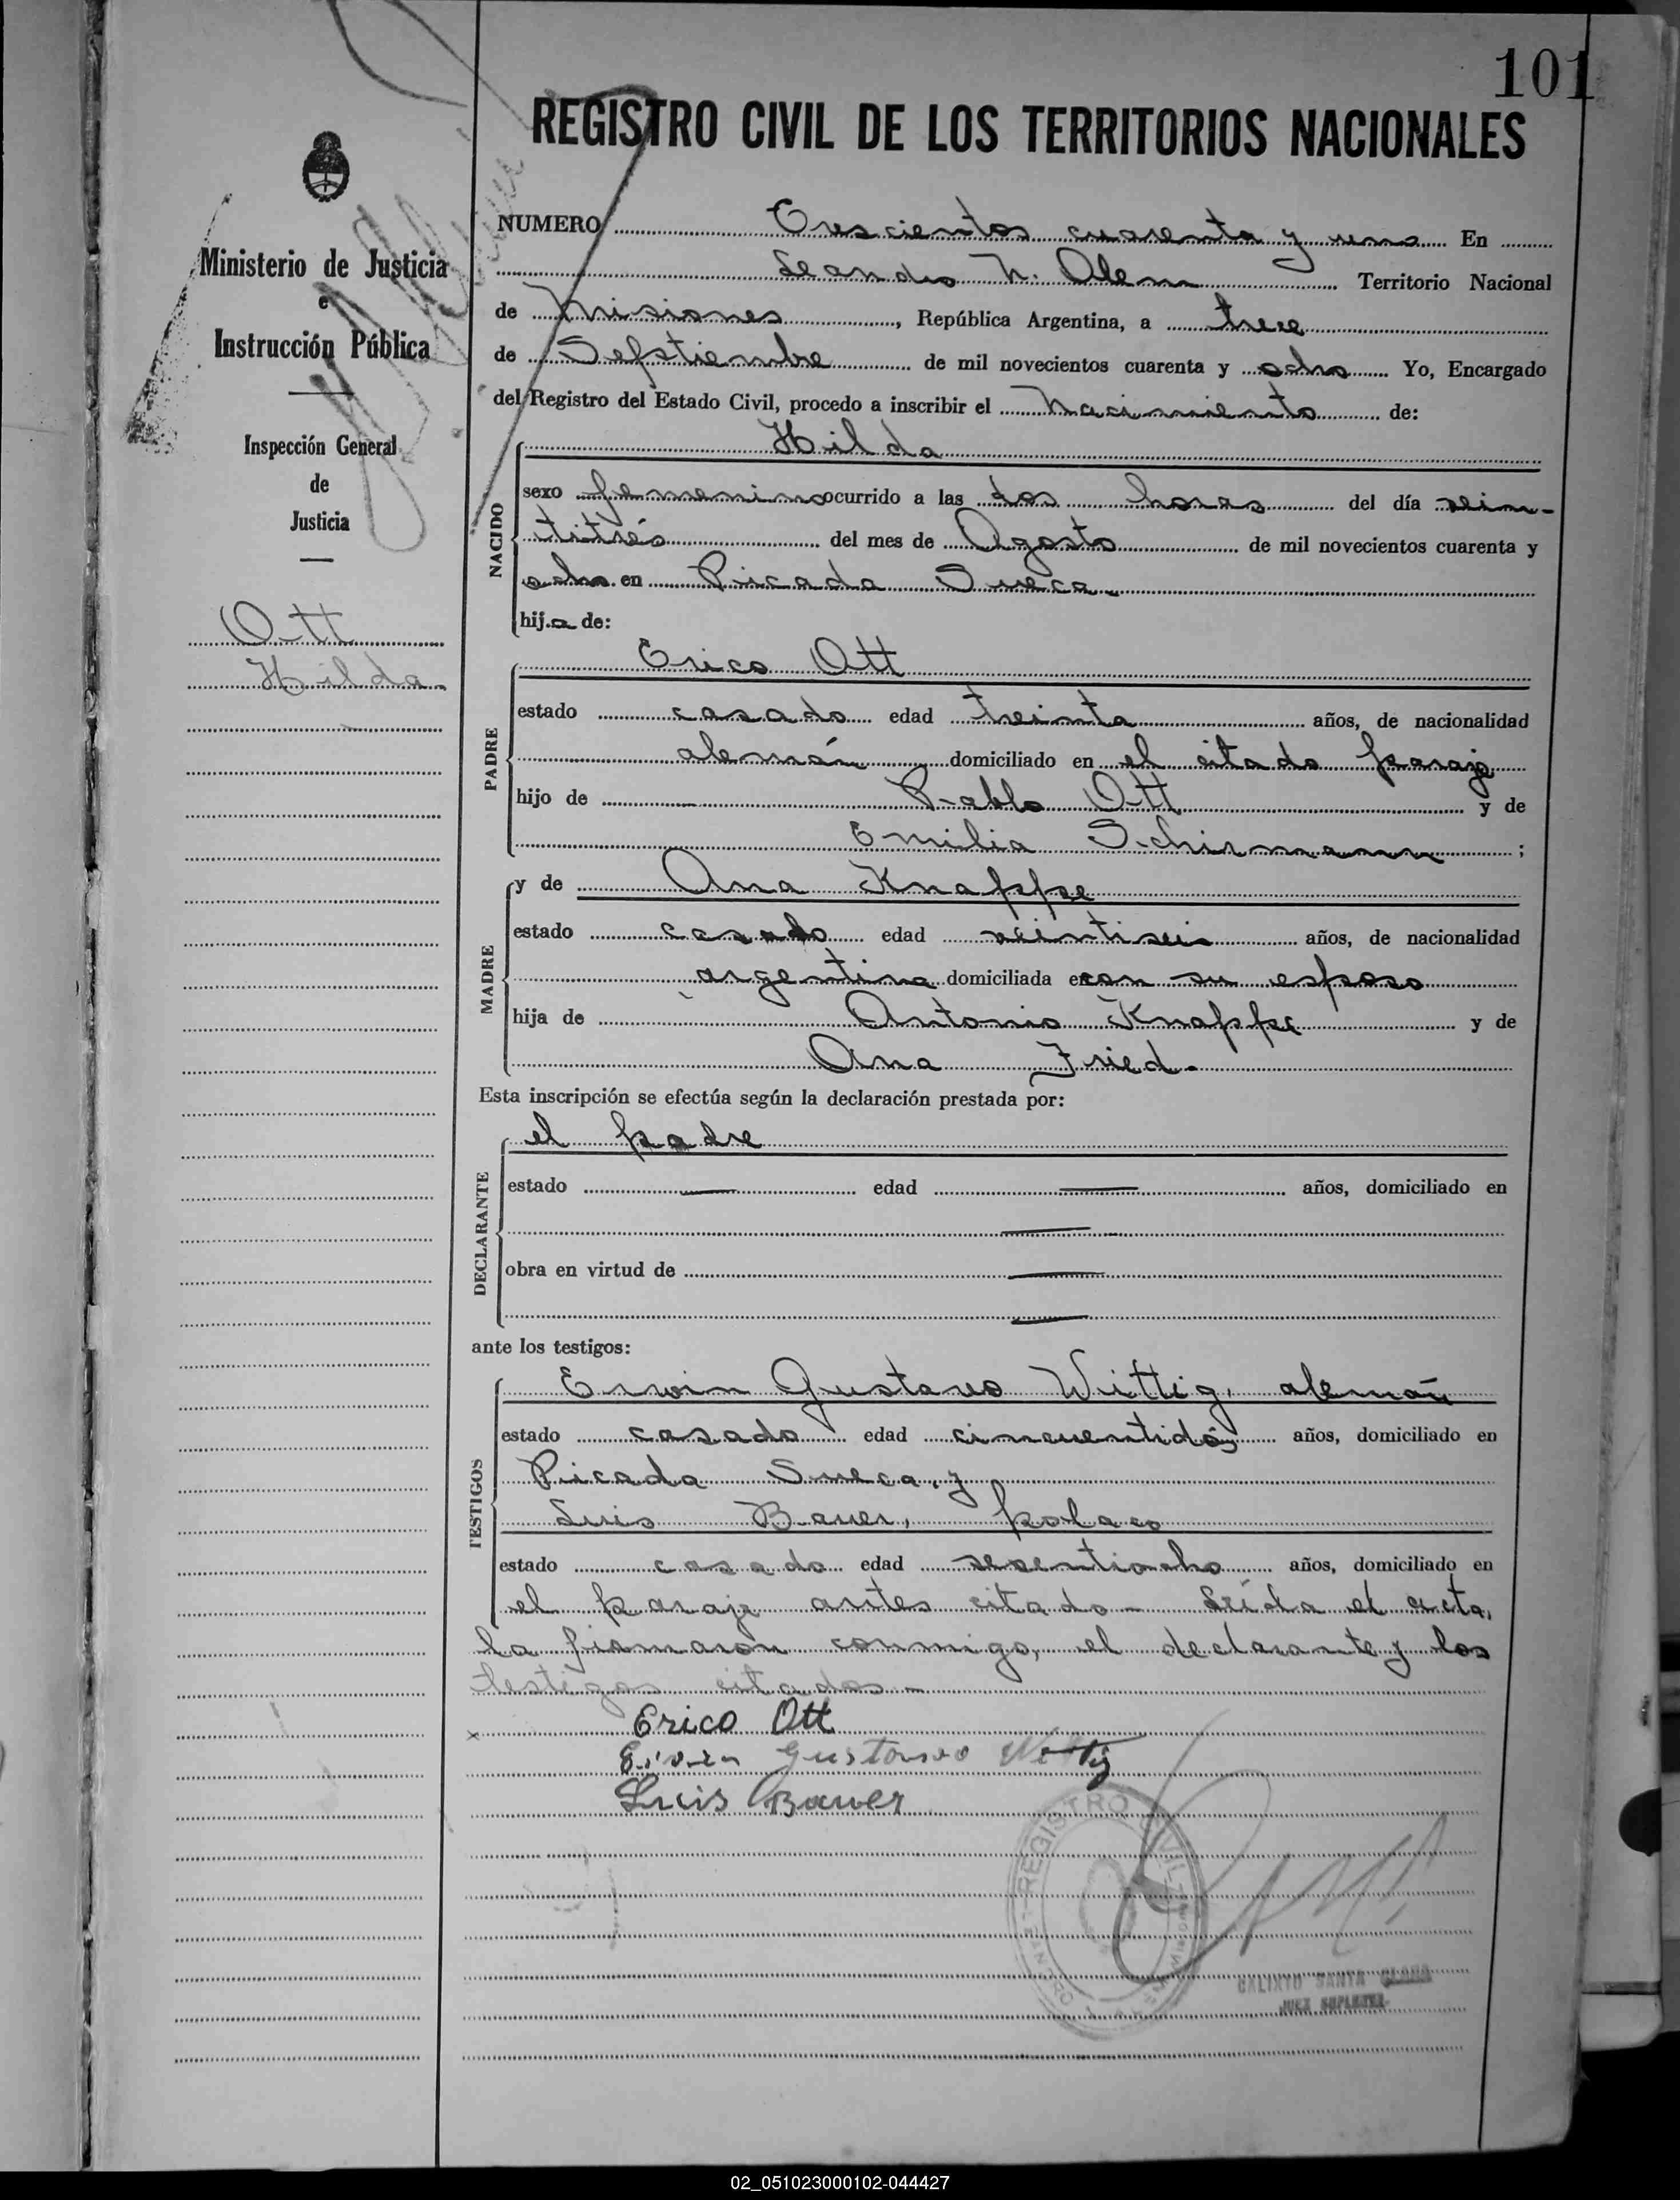 101
REGISTRO CIVIL DE LOS TERRITORIOS NACIONALES
Ministerio de Justicia
e
Instrucción Pública
Inspección General
de
Justicia
Ott
Hilda
NUMERO Trescientos cuarenta y uno En
Leandro N. Alem Territorio Nacional
de Misiones, República Argentina, a trece
de Septiembre de mil novecientos cuarenta y ocho Yo, Encargado
del Registro del Estado Civil, procedo a inscribir el nacimiento de:
NACIDO
Hilda
sexo femenino ocurrido a las dos horas del día vein-
titrés del mes de Agosto de mil novecientos cuarenta y
ocho en Picada Sueca
hija de:
PADRE
Erico Ott
estado casado edad treinta años, de nacionalidad
alemán domiciliado en el citado paraje
hijo de Pablo Ott y de
Emilia Schirmann;
MADRE
y de Ana Knappe
estado casada edad veintiseis años, de nacionalidad
argentina domiciliada en con su esposo
hija de Antonio Knappe y de
Ana Fried.
Esta inscripción se efectúa según la declaración prestada por:
DECLARANTE
el padre
estado — edad — años, domiciliado en
—
obra en virtud de —
—
ante los testigos:
TESTIGOS
Erwin Gustavo Wittig, alemán
estado casado edad cincuentidós años, domiciliado en
Picada Sueca, y
Luis Bauer, polaco
estado casado edad sesentiocho años, domiciliado en
el paraje antes citado - Leída el acta,
la firmaron conmigo, el declarante y los
testigos citados -
x Erico Ott
Erwin Gustavo Wittig
Luis Bauer
REGISTRO CIVIL
CALIXTO SANTA CLARA
JUEZ SUPLENTE
02_051023000102-044427